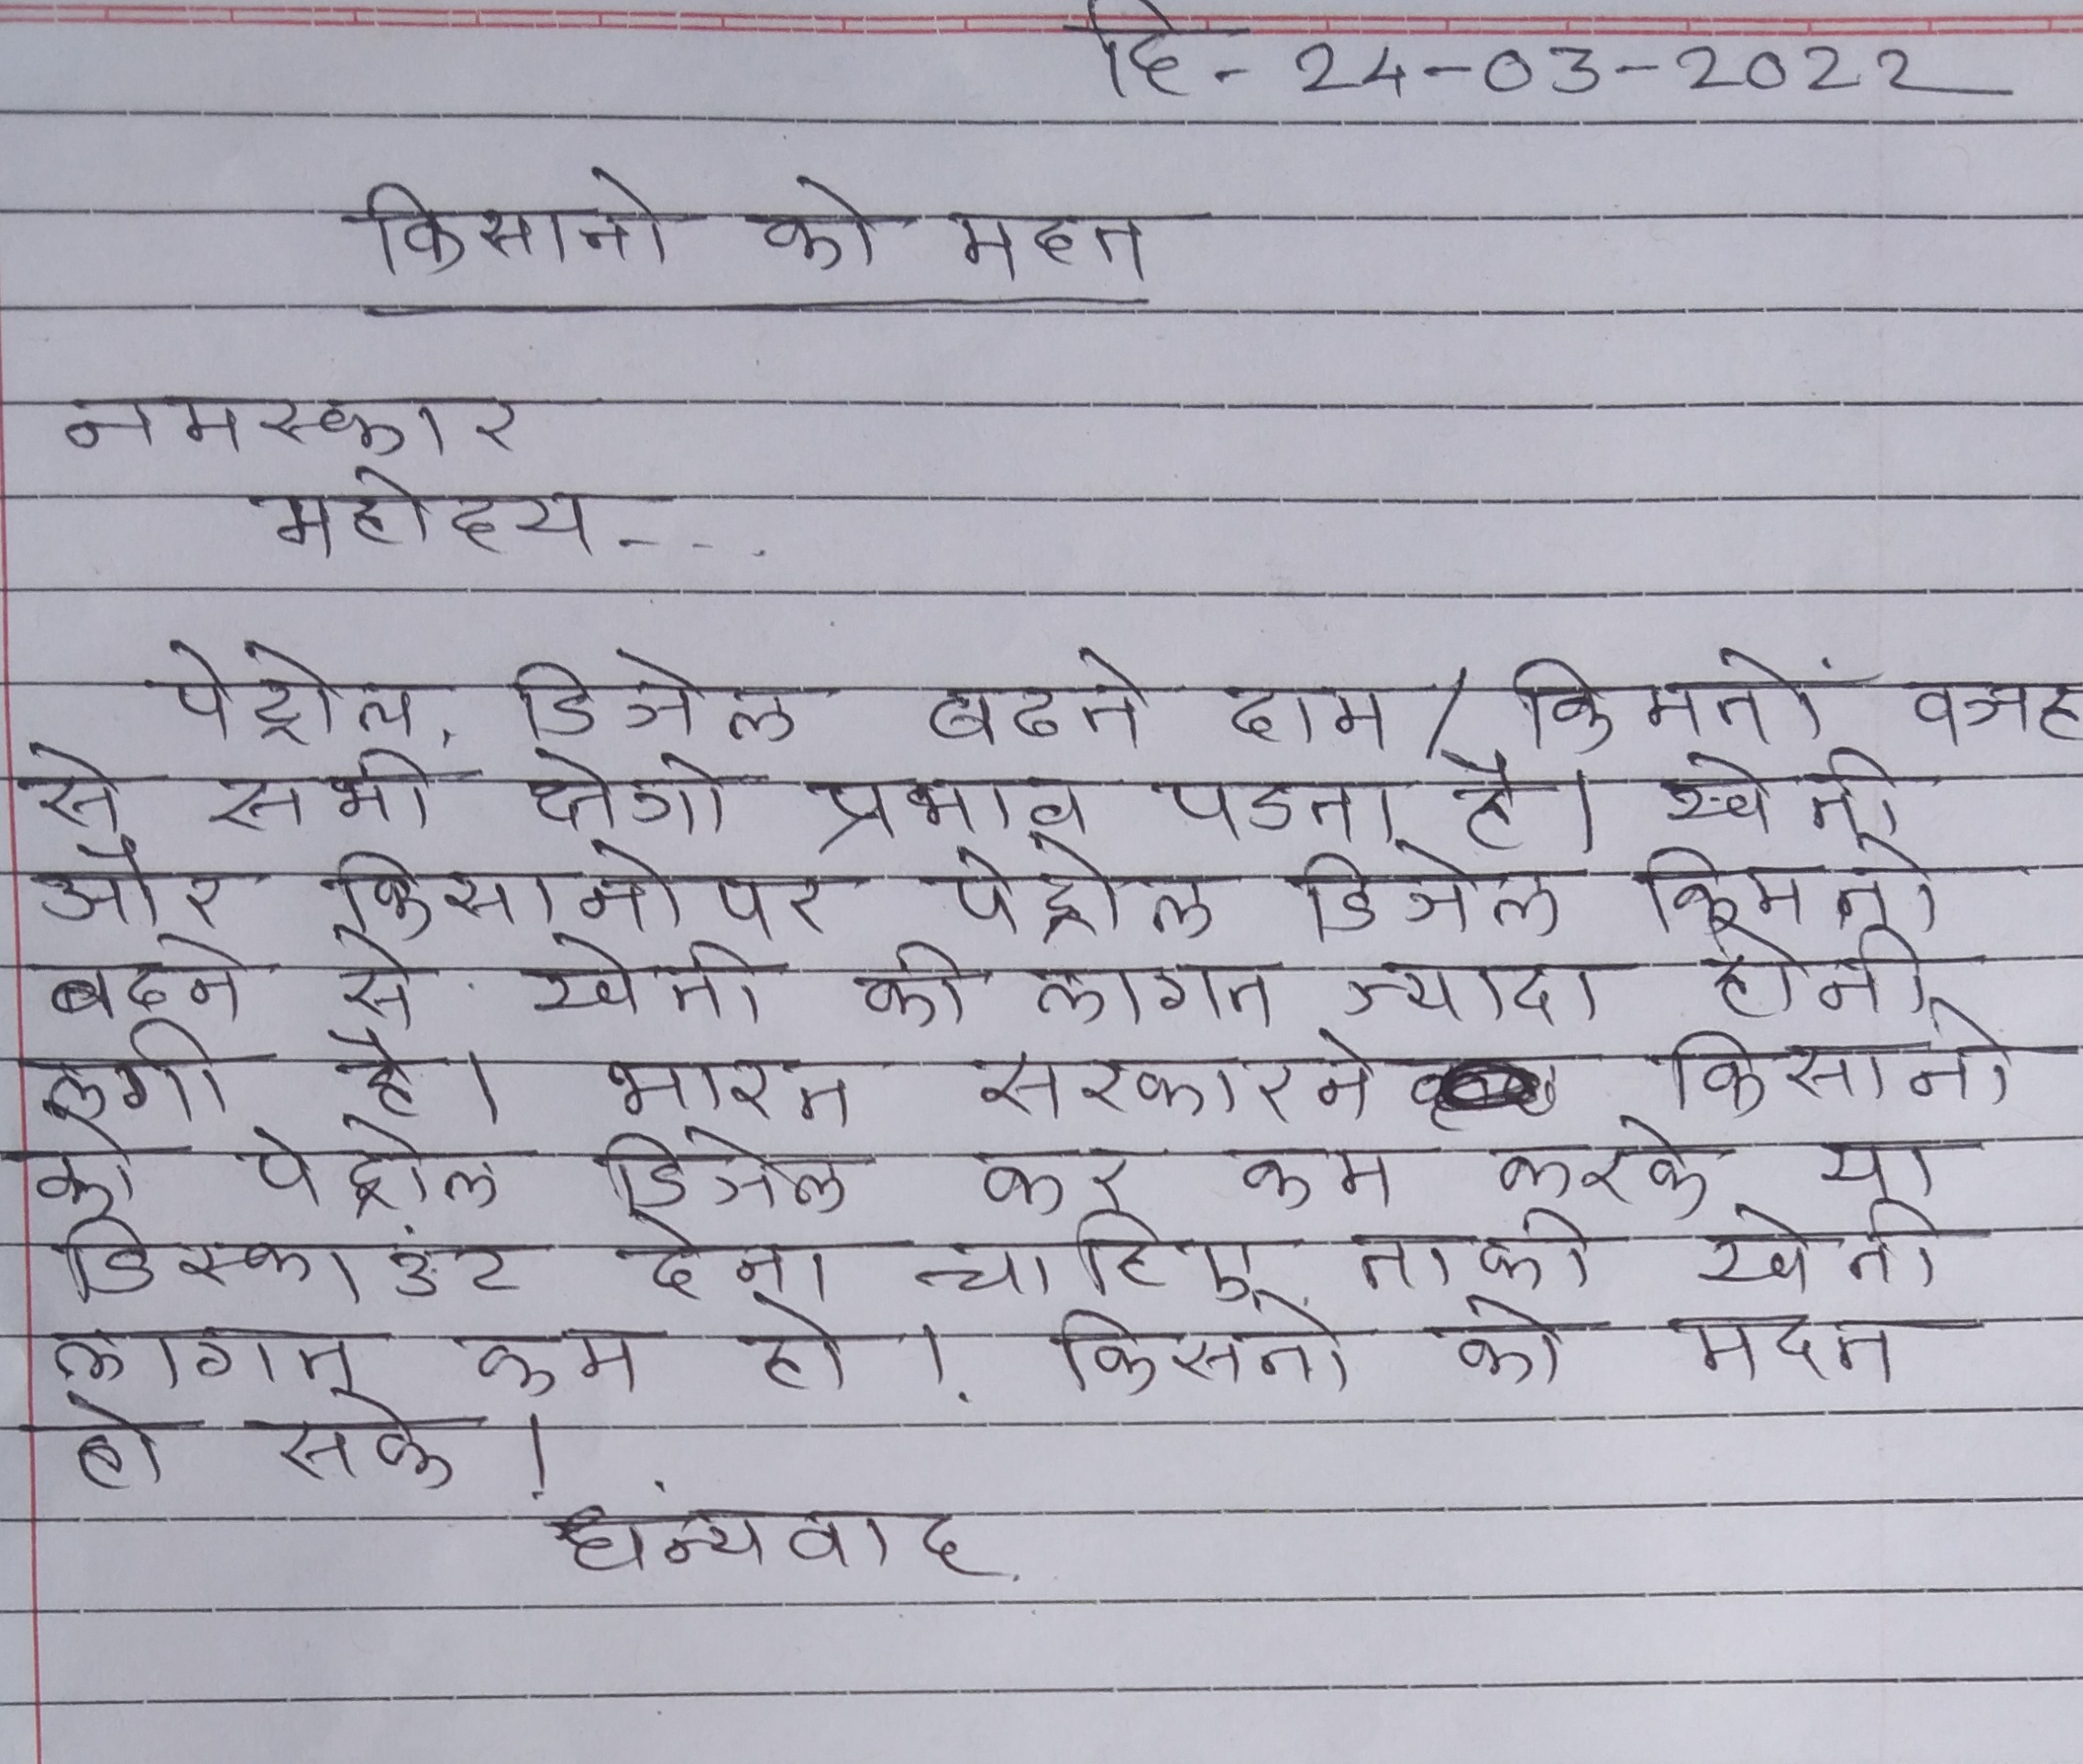 दि - 24-03-2022
किसानो को मदत
नमस्कार
महोदय - - -.
पेट्रोल, डिजेल बढने दाम / किमतों वजह
से सभी क्षेगो प्रभाव पडता है। खेती
और किसानो पर पेट्रोल डिजेल किमतो
बढने से खेती की लागत ज्यादा होती
लगी है। भारत सरकारने किसानो
को पेट्रोल डिजेल कर कम करके या
डिस्काउंट देना चाहिए ताकी खेती
लागत कम हो। किसनो को मदत
हो सके।
धन्यवाद.